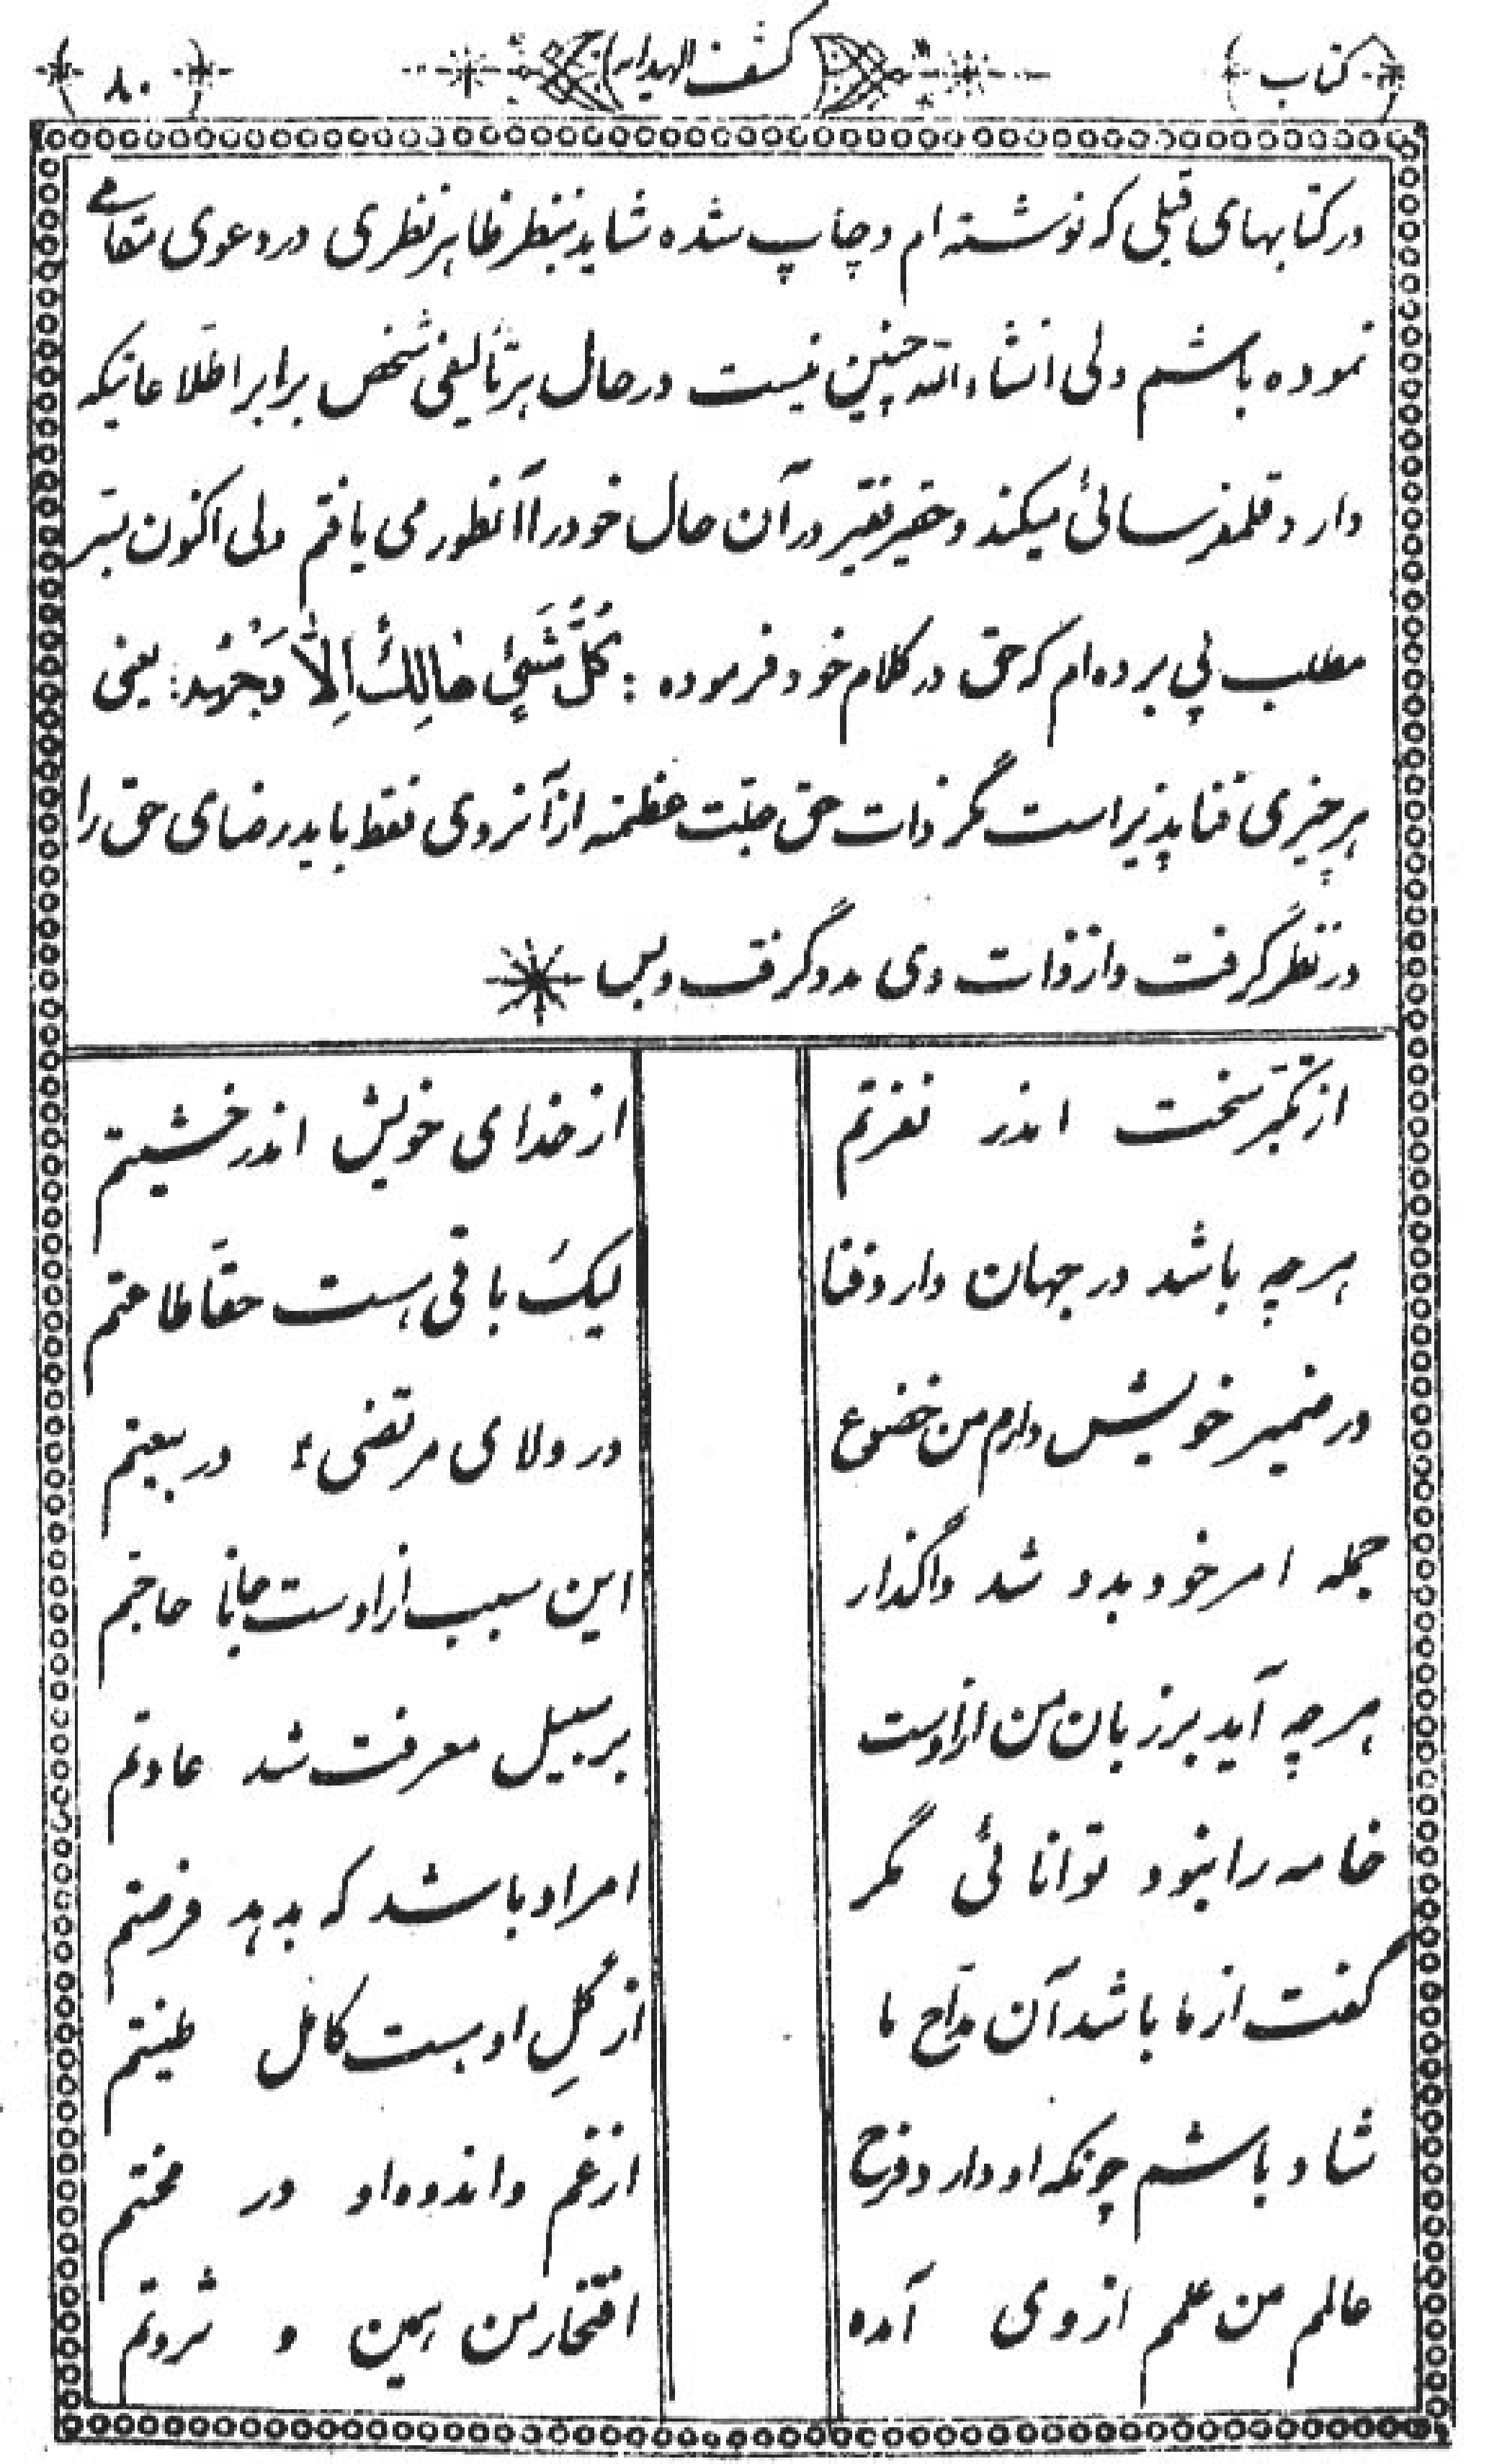 کتاب
کشف الهدایه
۸۰
در کتابهای قبلی که نوشته ام و چاپ شده شاید بنظر ظاهر نظری در دعوی مقامی
نموده باشم ولی انشاءالله چنین نیست در حال هر تألیفی شخص برابر اطلاعاتیکه
دارد قلمفرسائی میکند و حقیر فقیر در آن حال خود را آنطور می یافتم ولی اکنون بهتر
مطلب پی برده ام که حق در کلام خود فرموده : کُلُّ شَیْئٍ هٰالِکٌ اِلاّٰ وَجْهُهُ: یعنی
هر چیزی فنا پذیر است مگر ذات حق جلّت عظمته از آنروی فقط باید رضای حق را
در نظر گرفت و از ذات وی مدد گرفت و بس
از تکبّر سخت اندر نفرتم
از خدای خویش اندر خشیتم
هر چه باشد در جهان دارد فنا
لیک باقی هست حقّا طاعتم
در ضمیر خویش دارم من خضوع
در ولای مرتضیء در بیعتم
جمله امر خود بدو شد واگذار
این سبب از اوست جانا حاجتم
هر چه آید بر زبان من از اوست
بر سبیل معرفت شد عادتم
خامه را نبود توانائی مگر
امر او باشد که بدهد فرصتم
گفت از ما باشد آن مدّاح ما
از گِلِ او بست کامل طینتم
شاد باشم چونکه او دارد فرح
از غم و اندوه او در محنتم
عالم من علم از وی آمده
افتخار من همین و ثروتم